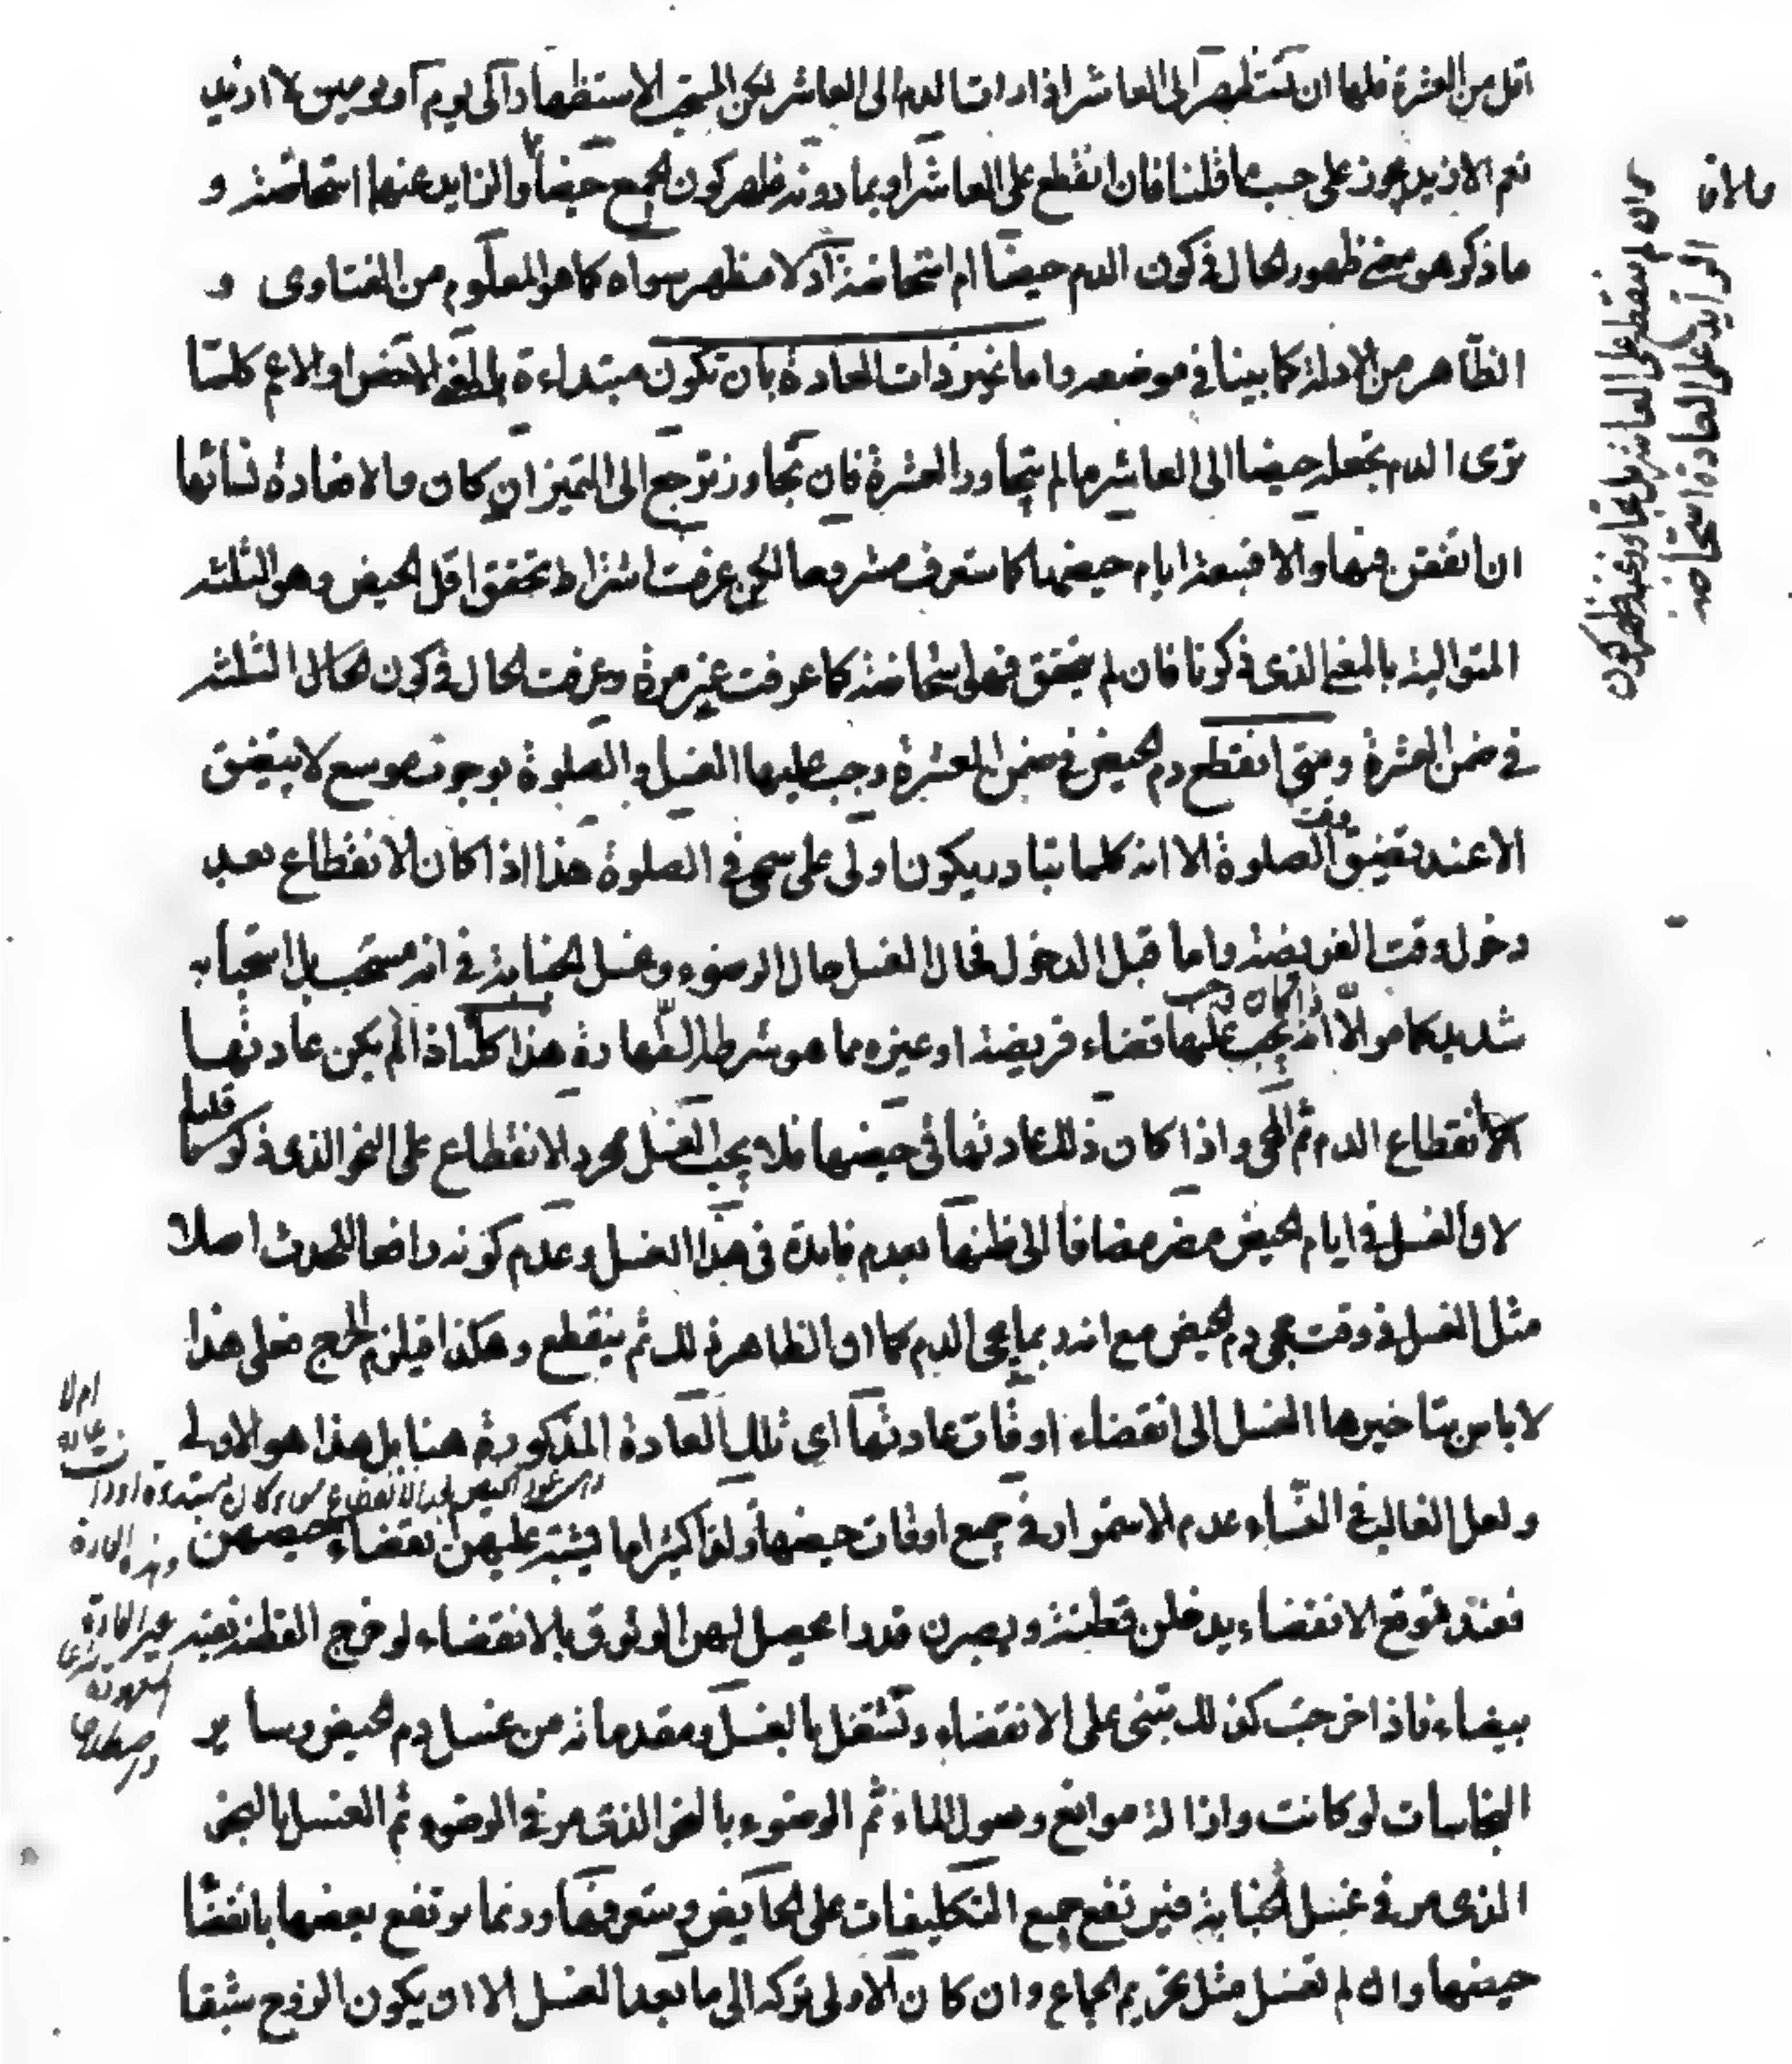 اقل من العشرة فلها ان تستظهر الى العاشر اذا رات الدم الى العاشر لكن المستحب الاستظهار الى يوم او يومين لا ازيد
نعم الازيد يجوز على حسب ما قلنا فان انقطع على العاشر او بما دونه ظهر كون الجميع حيضا والزايد عنها استحاضة و
ما ذكر هو معنى ظهور الحال في كون الدم حيضا ام استحاضة اذ لا مظهر سواه كما هو المعلوم من الفتاوى و
الظاهر من الادلة كما بينا في موضعه واما غير ذات العادة بان تكون مبتداءة بالمعنى الاخص او الاعم كلما
ترى الدم تجعله حيضا الى العاشر ما لم يتجاوز العشرة فان تجاوز ترجع الى التميز ان كان والا فعادة نسائها
ان اتفقن فيها والا فسبعة ايام حيضها كما ستعرف مشروحا لكن عرفت اشتراط تحقق اقل الحيض وهو الثلثة
المتوالية بالمعنى الذي ذكرنا فان لم يتحقق فهي استحاضة كما عرفت غير مرة وعرفت الحال في كون محال الثلثة
في ضمن العشرة ومتى انقطع دم الحيض في ضمن العشرة وجب عليها الغسل والصلوة بوجوب موسع لا يتضيق
الا عند تضيق وقت الصلوة الا انه كلما تبادر يكون اولى على سمى في الصلوة هذا اذا كان الانقطاع بعد
دخول وقت الفريضة واما قبل الدخول فحال الغسل حال الوضوء وغسل الجنابة في انه مستحب بل استحبابه
شديد كما مر الا انه اذا كان يجب عليها قضاء فريضة او غيره مما هو شرط الطهارة هذا كله اذا لم يكن عادتها
انقطاع الدم ثم المجى واذا كان ذلك عادتها في حيضها فلا يجب الغسل بمجرد الانقطاع على النحو الذي ذكرنا قليلا
لان الغسل في ايام الحيض مضر مضافا الى ظنها بعدم فايدة في هذا الغسل وعدم كونه رافعا للحدث اصلا
مثل الغسل في وقت مجى دم الحيض مع انه ربما يجى الدم كما ان الظاهر ذلك ثم ينقطع وهكذا فيلزم الحرج فعلى هذا
لا باس بتاخيرها الغسل الى انقضاء اوقات عادتها اى تلك العادة المذكورة هنا بل هذا هو الاولى
ولعل الغالب في النساء عدم الاستمرار في جميع اوقات حيضها ولذا كثيرا ما يشتبه عليهن انقضاء حيضهن
فعند توقع الانقضاء يدخلن قطنة ويصبرن قدرا يحصل لهن الوثوق بالانقضاء لو خرج القطنة نقية
بيضاء فاذا خرجت كذلك تبنى على الانقضاء وتشتغل بالغسل ومقدماته من غسل دم الحيض وساير
النجاسات لو كانت وازالة موانع وصول الماء ثم الوضوء بالنحو الذي مر في الوضوء ثم الغسل بالنحو
الذي مر في غسل الجنابة فيرتفع جميع التكليفات على الحايض وستعرفها وربما يرتفع بعضها بانقضا
حيضها وان لم تغسل مثل تحريم الجماع وان كان الاولى تركه الى ما بعد الغسل الا ان يكون الزوج شبقا
وان لم ينقطع على العاشر بل تجاوز عنه ظهر كون
الزايد على العادة استحاضة